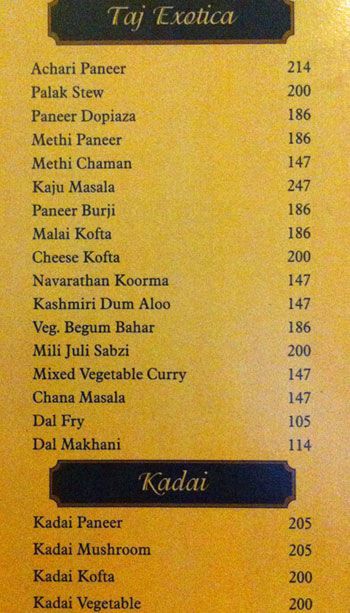 Taj Exotica
Achari Paneer 214
Palak Stew 200
Paneer Dopiaza 186
Methi Paneer 186
Methi Chaman 147
Kaju Masala 247
Paneer Burji 186
Malai Kofta 186
Cheese Kofta 200
Navarathan Koorma 147
Kashmiri Dum Aloo 147
Veg. Begum Bahar 186
Mili Juli Sabzi 200
Mixed Vegetable Curry 147
Chana Masala 147
Dal Fry 105
Dal Makhani 114
Kadai
Kadai Paneer 205
Kadai Mushroom 205
Kadai Kofta 200
Kadai Vegetable 200